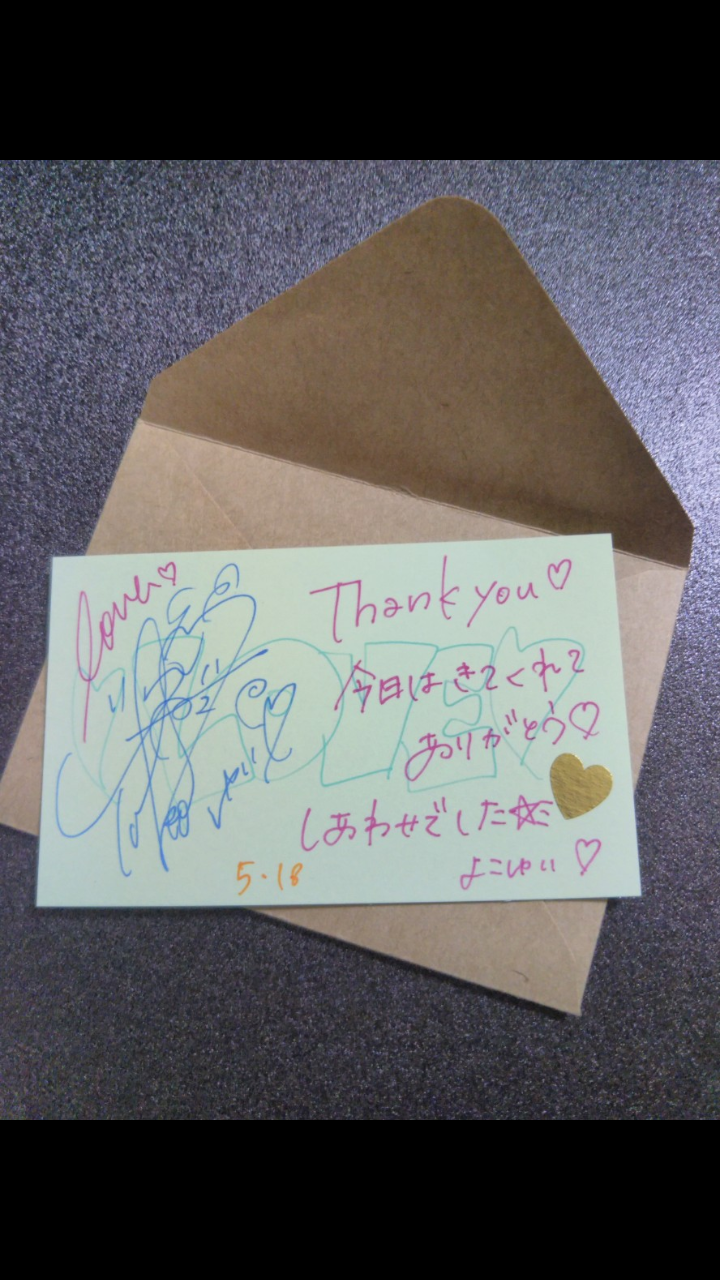 love♡
Thank you♡
今日はきてくれて
ありがとう♡
しあわせでした☆ミ
よこゆい♡
5.18